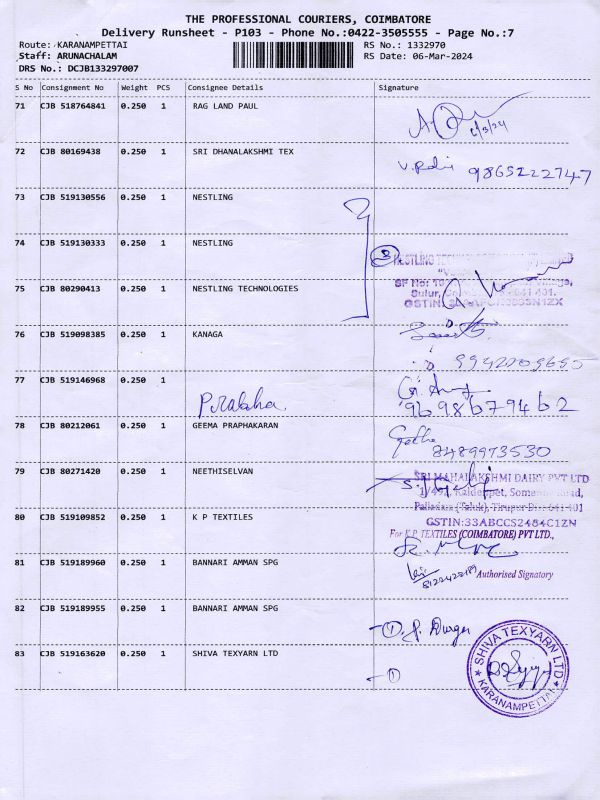 THE PROFESSIONAL COURIERS, COIMBATORE
Delivery Runsheet - P103 - Phone No.:0422-3505555 - Page No.:7
Route: KARANAMPETTAI RS No.: 1332970
Staff: ARUNACHALAM RS Date: 06-Mar-2024
DRS No.: DCJB133297007
S No Consignment No Weight PCS Consignee Details Signature
71 CJB 518764841 0.250 1 RAG LAND PAUL
6/3/24
72 CJB 80169438 0.250 1 SRI DHANALAKSHMI TEX
9865222747
73 CJB 519130556 0.250 1 NESTLING
74 CJB 519130333 0.250 1 NESTLING
75 CJB 80290413 0.250 1 NESTLING TECHNOLOGIES
76 CJB 519098385 0.250 1 KANAGA
77 CJB 519146968 0.250 1
Prabha
9698679462
78 CJB 80212061 0.250 1 GEEMA PRAPHAKARAN
Geetha
8489973530
79 CJB 80271420 0.250 1 NEETHISELVAN
SRI MAHALAKSHMI DAIRY PVT LTD
Palladam (Taluk), Tirupur Dist. 641 401
GSTIN:33ABCCS2484C1ZN
80 CJB 519109852 0.250 1 K P TEXTILES
For K P TEXTILES (COIMBATORE) PVT LTD.,
81 CJB 519189960 0.250 1 BANNARI AMMAN SPG
Authorised Signatory
82 CJB 519189955 0.250 1 BANNARI AMMAN SPG
83 CJB 519163620 0.250 1 SHIVA TEXYARN LTD
SHIVA TEXYARN LTD
KARANAMPETTAI